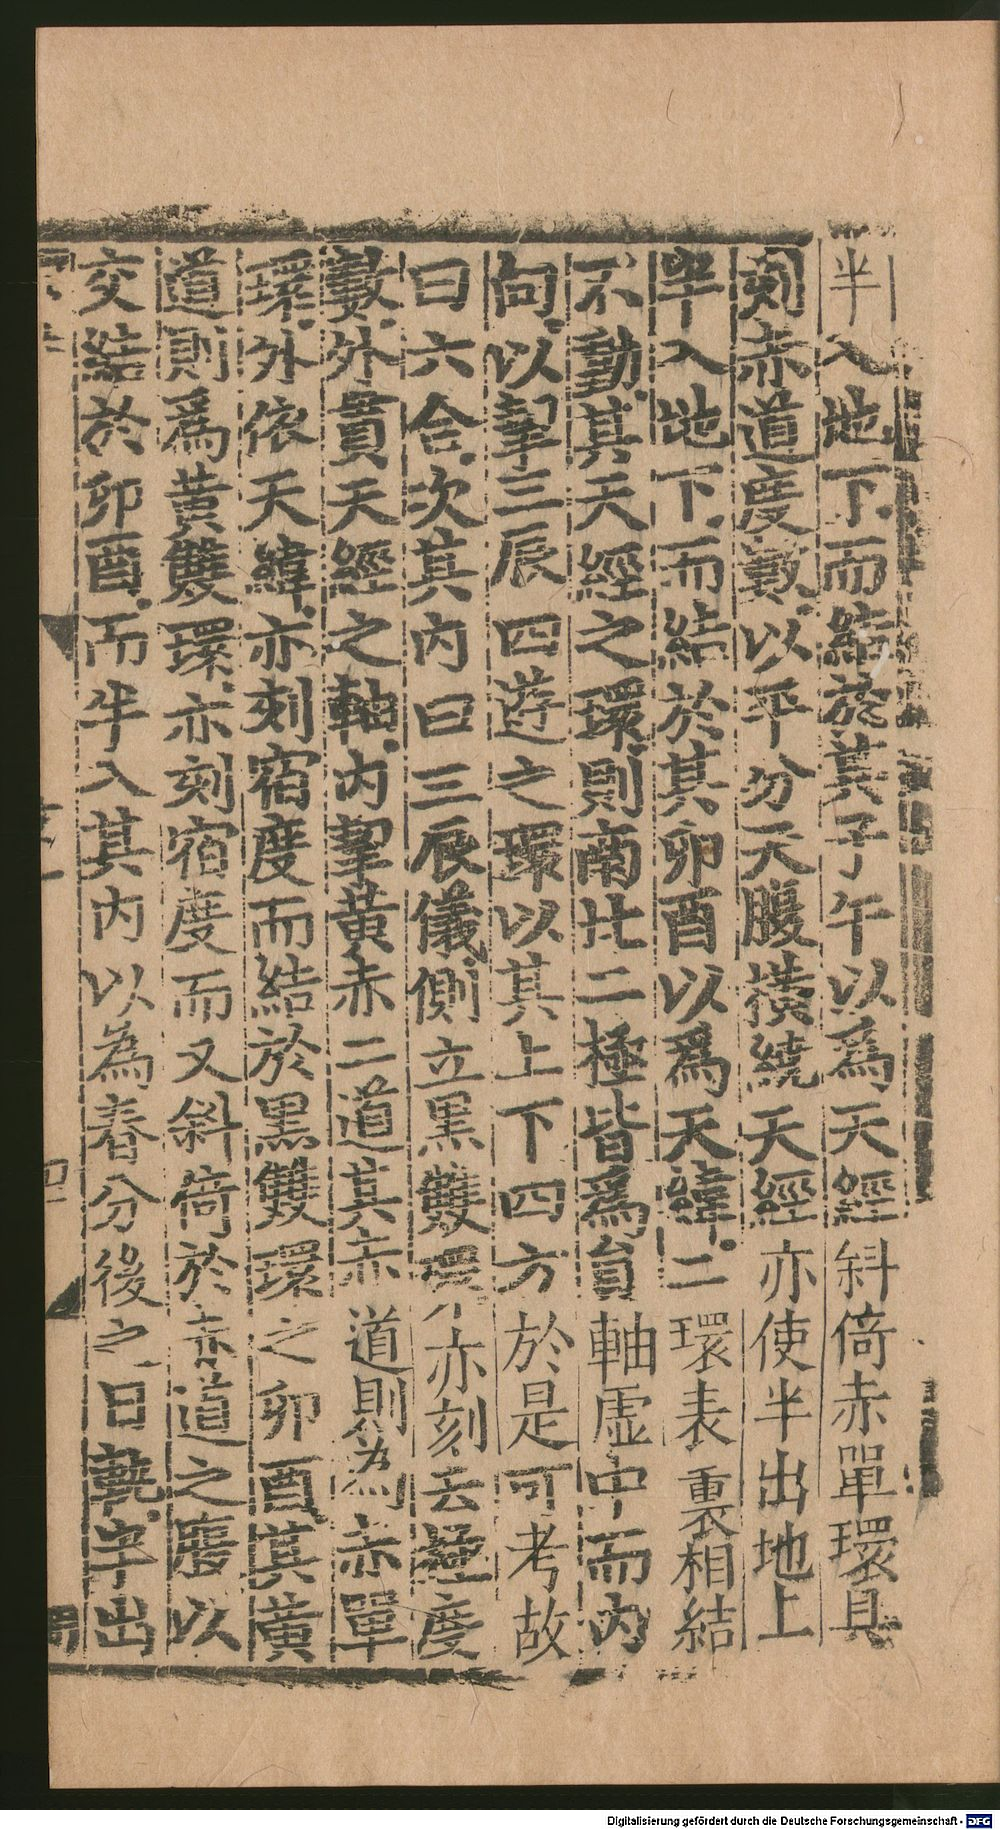 半入地下而結於其子午以爲天經斜倚赤單環具
刻赤道度數以平分天腹橫繞天經亦使半出地上
半入地下而結於其卯酉以爲天緯二環表裏相結
不動其天經之環則南北二極皆爲負軸虛中而內
向以挈三辰四遊之環以其上下四方於是可考故
曰六合次其內曰三辰儀側立黑雙環亦刻去極度
數外貫天經之軸內挈黃赤二道其赤道則為赤單
環外依天緯亦刻宿度而結於黑雙環之卯酉其黃
道則爲黃雙環亦刻宿度而又斜倚於赤道之腹以
交結於卯酉而半入其內以為春分後之日軌半出
Digitalisierung gefördert durch die Deutsche Forschungsgemeinschaft - DFG